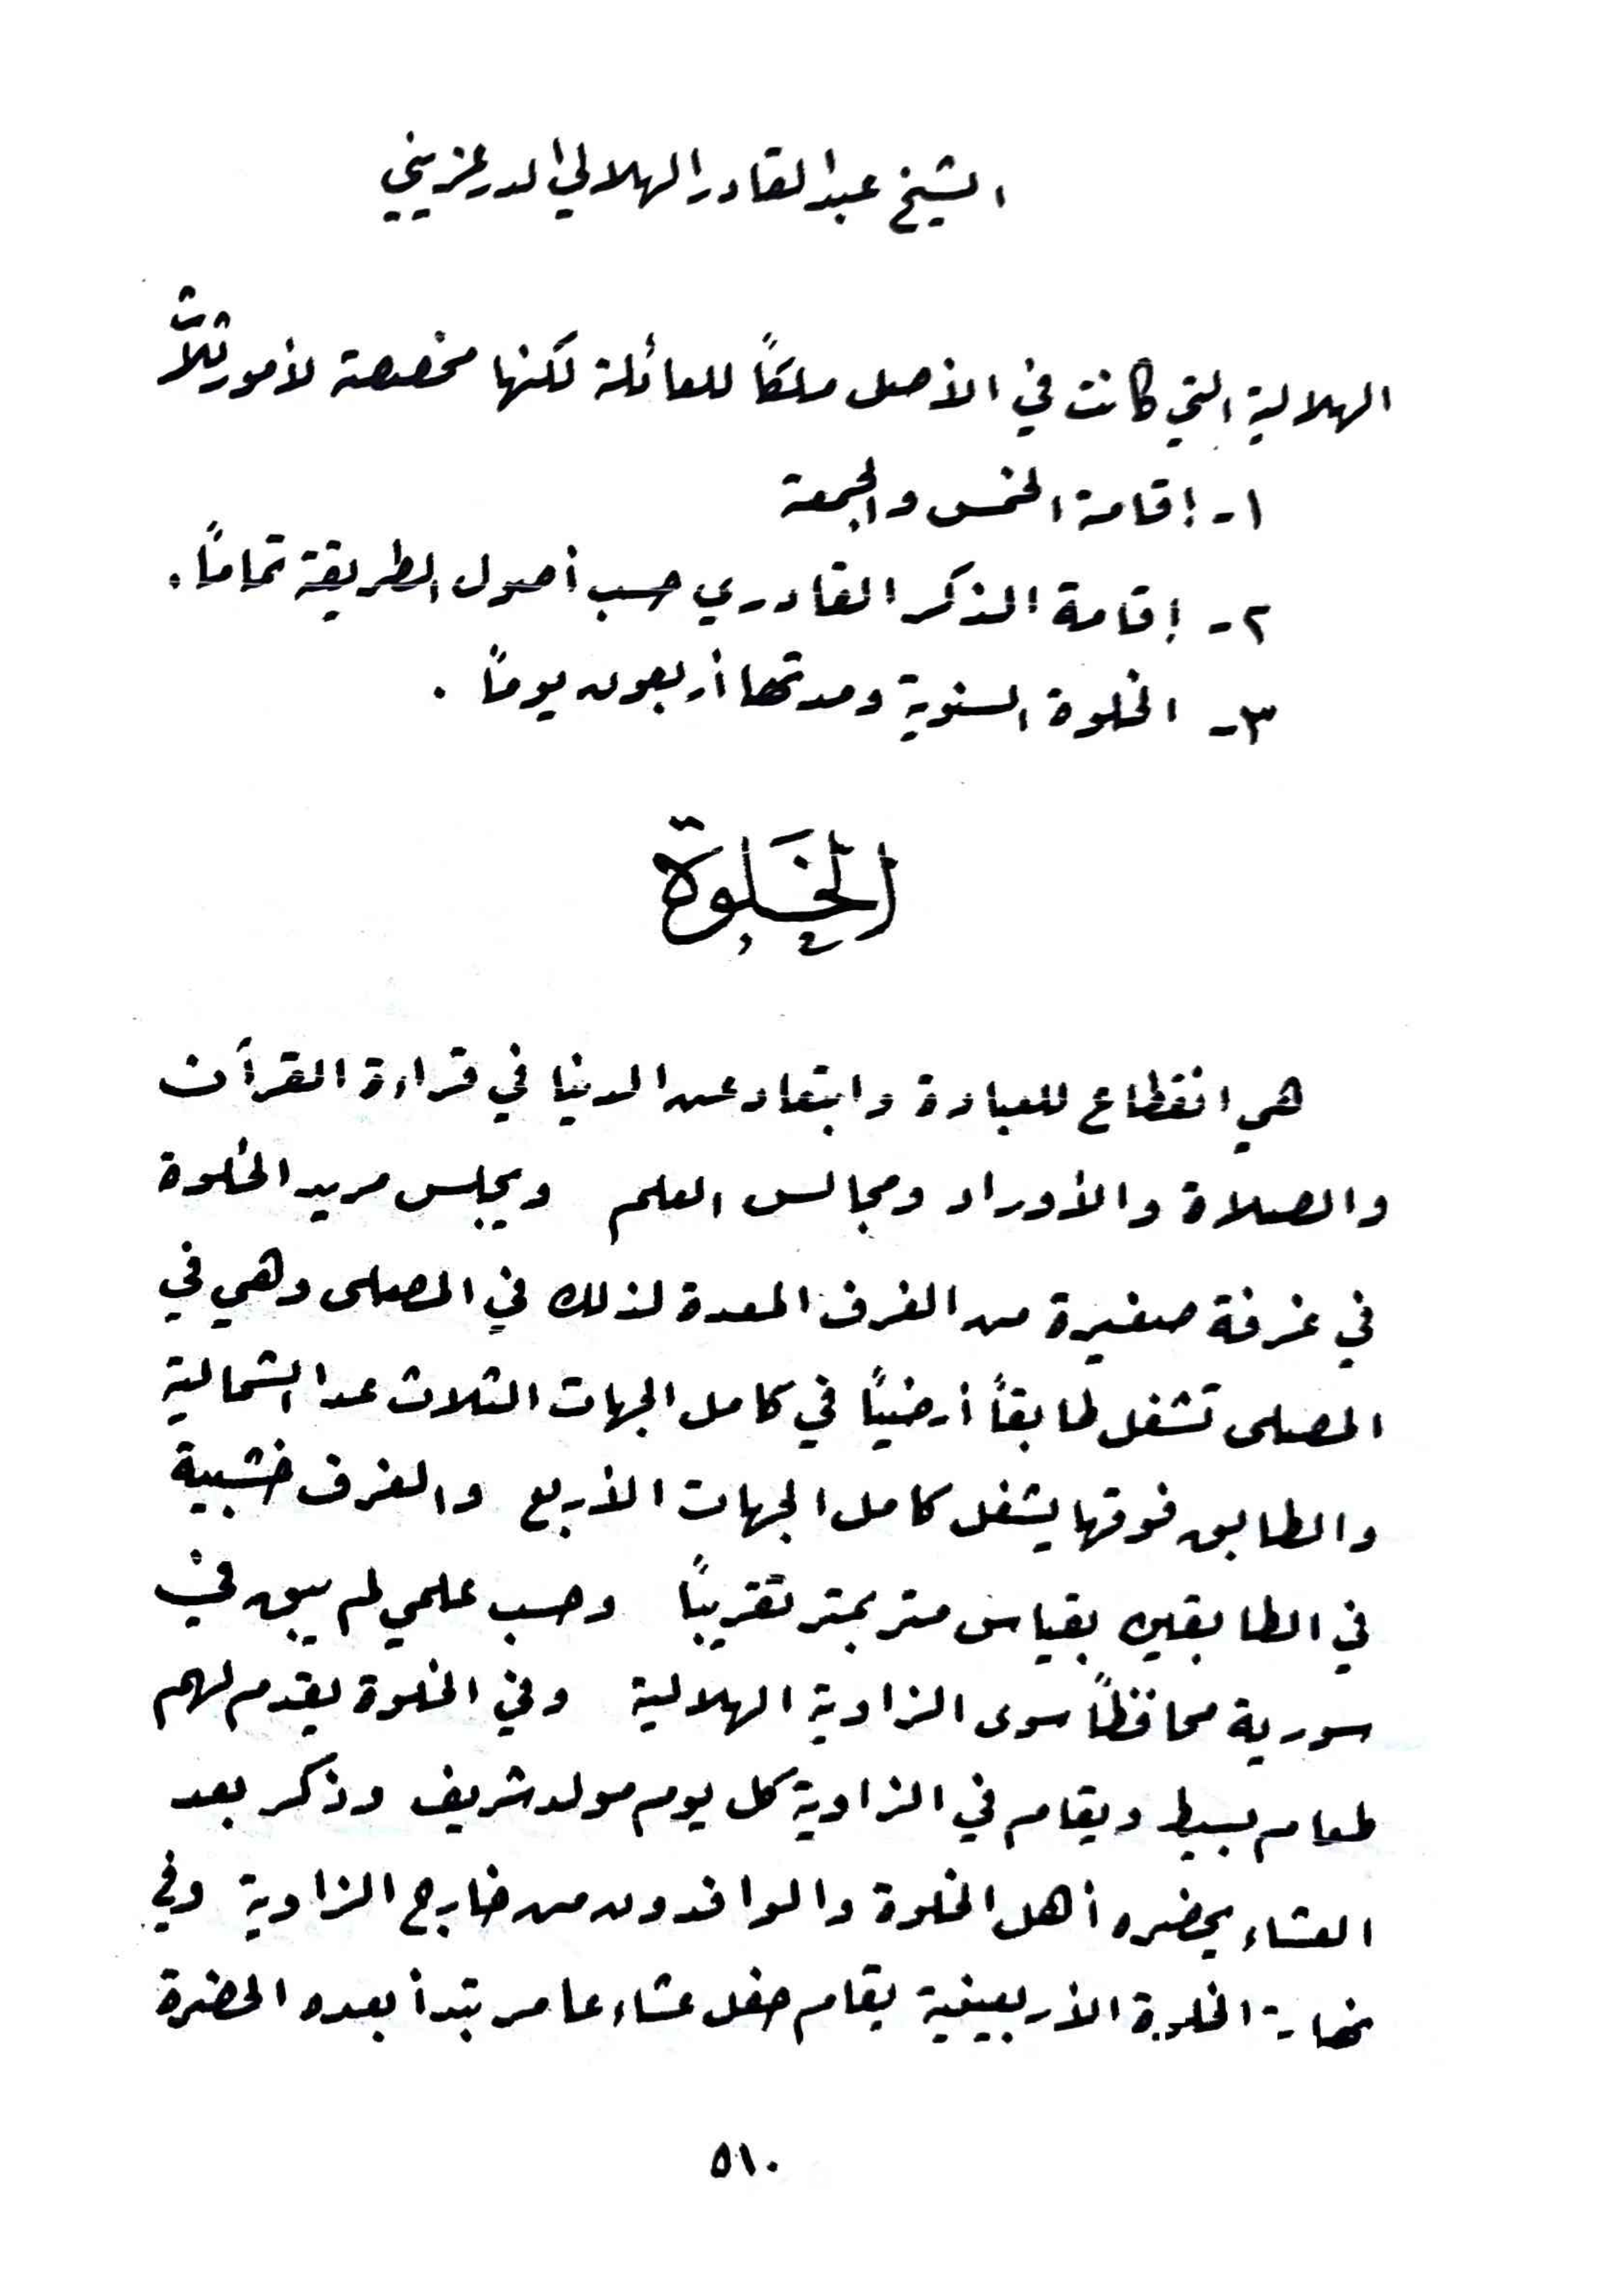 الشيخ عبد القادر الهلالي الدرعزيني
الهلالية التي كانت في الأصل ملكاً للعائلة لكنها مخصصة لأمور ثلاث
١- إقامة الخمس والجمعة
٢- إقامة الذكر القادري حسب أصول الطريقة تماماً.
٣- الخلوة السنوية ومدتها أربعون يوماً .
الخَلوة
هي انقطاع للعبادة وابتعاد عن الدنيا في قراءة القرآن
والصلاة والأوراد ومجالس العلم ويجلس مريد الخلوة
في غرفة صغيرة من الغرف المعدة لذلك في المصلى وهي في
المصلى تشغل طابقاً أرضياً في كامل الجهات الثلاث عدا الشمالية
والطابق فوقها يشغل كامل الجهات الأربع والغرف خشبية
في الطابقين بقياس متر بمتر تقريباً وحسب علمي لم يبق في
سورية محافظاً سوى الزاوية الهلالية وفي الخلوة يقدم لهم
طعام بسيط ويقام في الزاوية كل يوم مولد شريف وذكر بعد
العشاء يحضره أهل الخلوة والوافدون من خارج الزاوية وفي
نهاية الخلوة الأربعينية يقام حفل عشاء عامر تبدأ بعده الحضرة
٥١٠